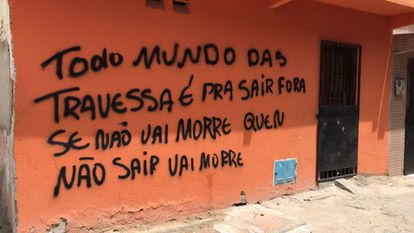 TODO MUNDO DAS
TRAVESSA É PRA SAIR FORA
SE NÃO VAI MORRE QUEN
NÃO SAIR VAI MORRE